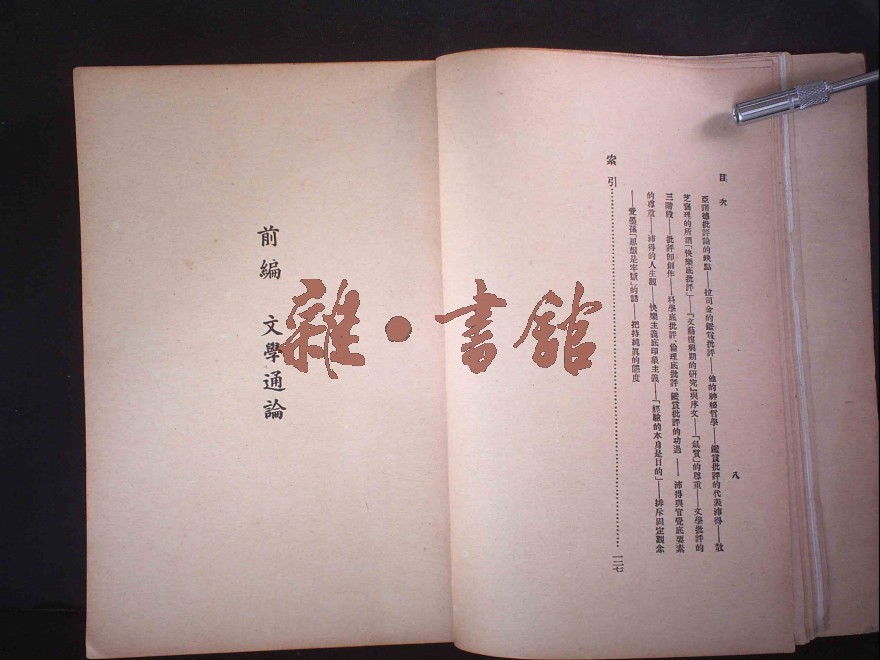 目次
八
亞諾德批評論的缺點——拉司金的鑑賞批評——他的神秘哲學——鑑賞批評的代表沛得——散
芝襲理的所謂「快樂底批評」——「文藝復興期的研究」與序文——「氣質」的尊重——文學批評的
三階段——批評即創作——科學底批評、倫理底批評、鑑賞批評的功過——沛得與官覺底要素
的尊重——沛得的人生觀——快樂主義底印象主義——「經驗的本身是目的」——排斥固定觀念
——愛墨孫「思想是牢獄」的話——把持純眞的態度
索引……一二七
前編 文學通論
雜·書館